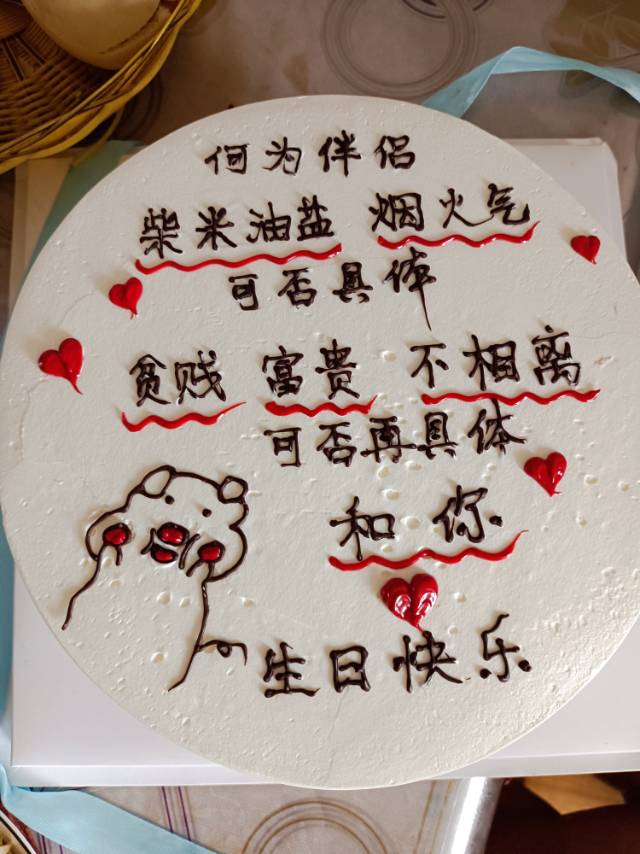 何为伴侣
柴米油盐 烟火气
可否具体
贫贱 富贵 不相离
可否再具体
和你
生日快乐